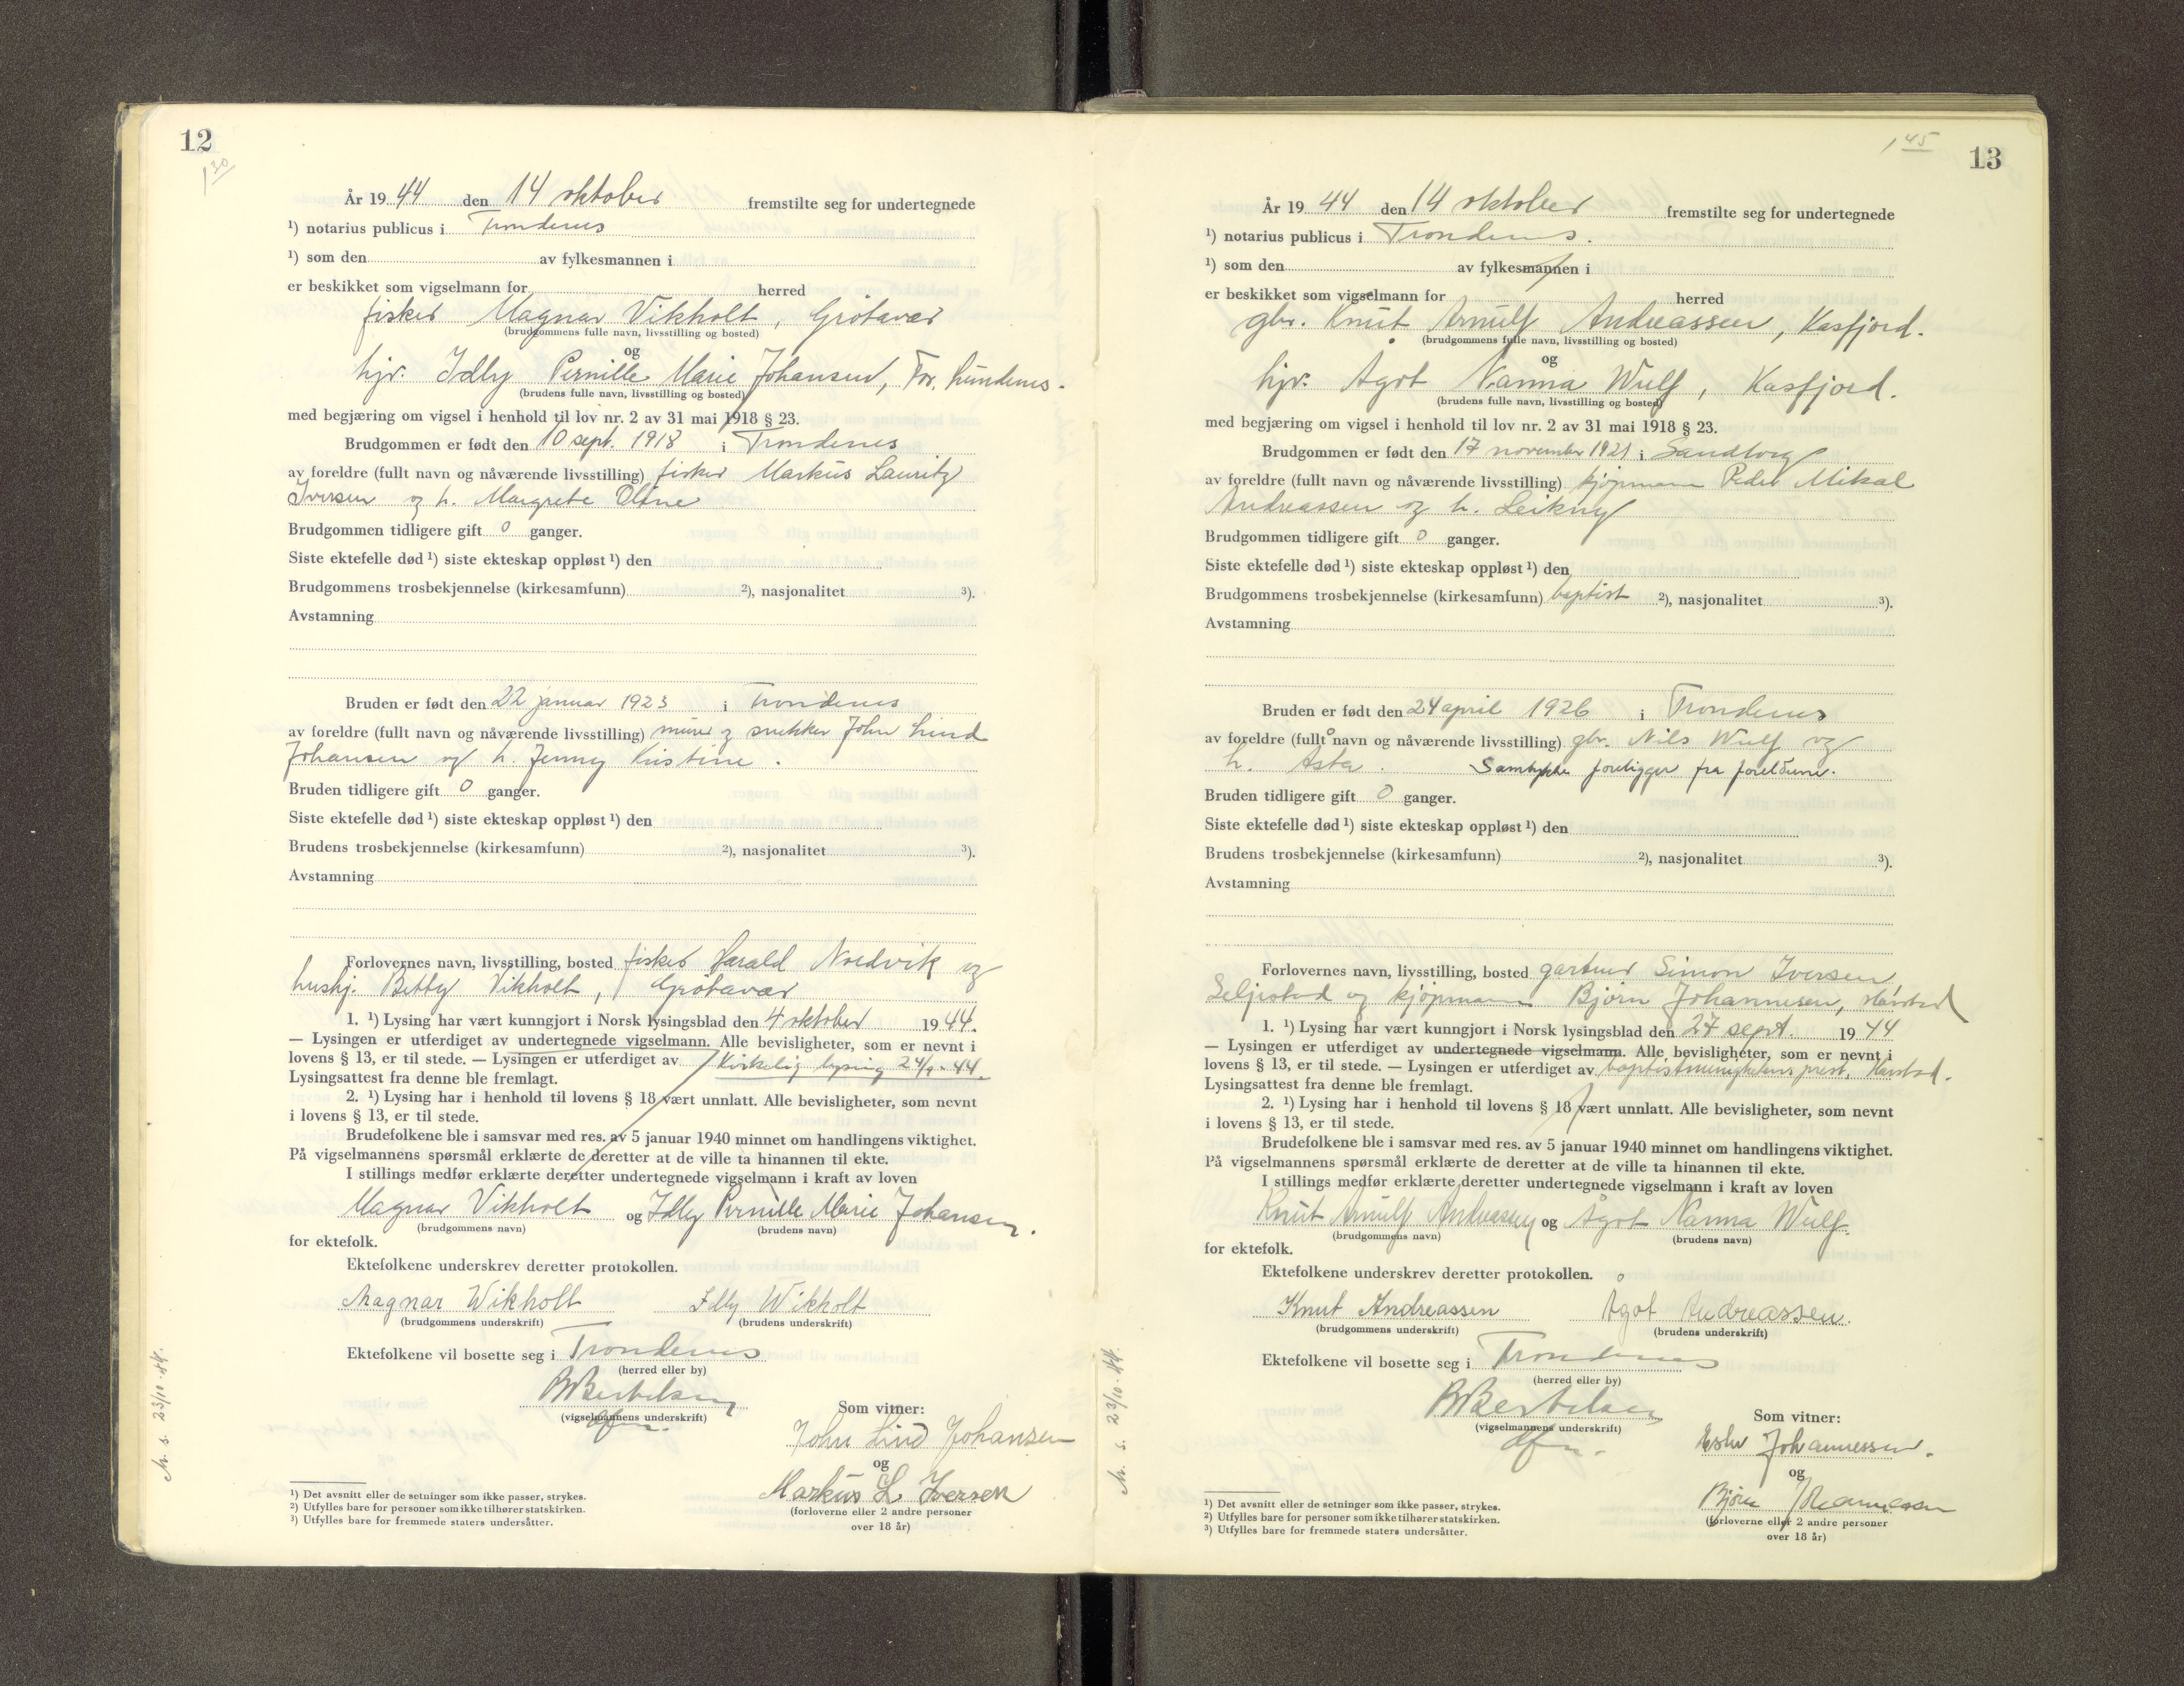 12
1 30
År 1944 den 14 oktober fremstilte seg for undertegnede
¹) notarius publicus i Trondenes
¹) som den av fylkesmannen i
er beskikket som vigselmann for herred
fisker Magnar Vikholt, Grötavær
(brudgommens fulle navn, livsstilling og bosted)
og
hjv. Idly Pernille Marie Johansen, Tov, Lundenes.
(brudens fulle navn, livsstilling og bosted)
med begjæring om vigsel i henhold til lov nr. 2 av 31 mai 1918 § 23.
Brudgommen er født den 10 sept. 1918 i Trondenes
av foreldre (fullt navn og nåværende livsstilling) fisker Markus Lauritz
Iversen og h. Margrete Oline
Brudgommen tidligere gift 0 ganger.
Siste ektefelle død ¹) siste ekteskap oppløst ¹) den
Brudgommens trosbekjennelse (kirkesamfunn) ²), nasjonalitet ³).
Avstamning
Bruden er født den 22 januar 1923 i Trondenes
av foreldre (fullt navn og nåværende livsstilling) murer og snekker John Lind
Johansen og h. Jenny Kristine.
Bruden tidligere gift 0 ganger.
Siste ektefelle død ¹) siste ekteskap oppløst ¹) den
Brudens trosbekjennelse (kirkesamfunn) ²), nasjonalitet ³).
Avstamning
Forlovernes navn, livsstilling, bosted fisker Harald Nordvik og
hushj. Betty Vikholt, Grötavær
1. ¹) Lysing har vært kunngjort i Norsk lysingsblad den 4 oktober 1944.
— Lysingen er utferdiget av undertegnede vigselmann. Alle bevisligheter, som er nevnt i
lovens § 13, er til stede. — Lysingen er utferdiget av Kirkelig lysing 24/9-44.
Lysingsattest fra denne ble fremlagt.
2. ¹) Lysing har i henhold til lovens § 18 vært unnlatt. Alle bevisligheter, som nevnt
i lovens § 13, er til stede.
Brudefolkene ble i samsvar med res. av 5 januar 1940 minnet om handlingens viktighet.
På vigselmannens spørsmål erklærte de deretter at de ville ta hinannen til ekte.
I stillings medfør erklærte deretter undertegnede vigselmann i kraft av loven
Magnar Vikholt og Idly Pernille Marie Johansen.
(brudgommens navn) (brudens navn)
for ektefolk.
Ektefolkene underskrev deretter protokollen.
Magnar Wikholt Idly Wikholt
(brudgommens underskrift) (brudens underskrift)
Ektefolkene vil bosette seg i Trondenes
(herred eller by)
B Bertelsen
(vigselmannens underskrift)
Som vitner:
John Lind Johansen
og
Markus L Iversen
(forloverne eller 2 andre personer
over 18 år)
¹) Det avsnitt eller de setninger som ikke passer, strykes.
²) Utfylles bare for personer som ikke tilhører statskirken.
³) Utfylles bare for fremmede staters undersåtter.
M. s. 23/10-44.
1 45
13
År 1944 den 14 oktober fremstilte seg for undertegnede
¹) notarius publicus i Trondenes.
¹) som den av fylkesmannen i
er beskikket som vigselmann for herred
gbr. Knut Arnulf Andreassen, Kasfjord.
(brudgommens fulle navn, livsstilling og bosted)
og
hjv. Ågot Nanna Wulf, Kasfjord.
(brudens fulle navn, livsstilling og bosted)
med begjæring om vigsel i henhold til lov nr. 2 av 31 mai 1918 § 23.
Brudgommen er født den 17 november 1921 i Sandtorg
av foreldre (fullt navn og nåværende livsstilling) kjøpmann Peder Mikal
Andreassen og h. Leikny
Brudgommen tidligere gift 0 ganger.
Siste ektefelle død ¹) siste ekteskap oppløst ¹) den
Brudgommens trosbekjennelse (kirkesamfunn) baptist ²), nasjonalitet ³).
Avstamning
Bruden er født den 24 april 1926 i Trondenes
av foreldre (fullt navn og nåværende livsstilling) gbr. Nils Wulf og
h. Åsta. Samtykke foreligger fra foreldrene.
Bruden tidligere gift 0 ganger.
Siste ektefelle død ¹) siste ekteskap oppløst ¹) den
Brudens trosbekjennelse (kirkesamfunn) ²), nasjonalitet ³).
Avstamning
Forlovernes navn, livsstilling, bosted gartner Simon Iversen
Seljestad og kjøpmann Bjørn Johannesen, Harstad
1. ¹) Lysing har vært kunngjort i Norsk lysingsblad den 27 sept. 1944
— Lysingen er utferdiget av undertegnede vigselmann. Alle bevisligheter, som er nevnt i
lovens § 13, er til stede. — Lysingen er utferdiget av baptistmenighetens prest, Harstad.
Lysingsattest fra denne ble fremlagt.
2. ¹) Lysing har i henhold til lovens § 18 vært unnlatt. Alle bevisligheter, som nevnt
i lovens § 13, er til stede.
Brudefolkene ble i samsvar med res. av 5 januar 1940 minnet om handlingens viktighet.
På vigselmannens spørsmål erklærte de deretter at de ville ta hinannen til ekte.
I stillings medfør erklærte deretter undertegnede vigselmann i kraft av loven
Knut Arnulf Andreassen og Ågot Nanna Wulf.
(brudgommens navn) (brudens navn)
for ektefolk.
Ektefolkene underskrev deretter protokollen.
Knut Andreassen Ågot Andreassen.
(brudgommens underskrift) (brudens underskrift)
Ektefolkene vil bosette seg i Trondenes
(herred eller by)
B Bertelsen
(vigselmannens underskrift)
Som vitner:
Johannessen.
og
Bjørn Johannessen
(forloverne eller 2 andre personer
over 18 år)
¹) Det avsnitt eller de setninger som ikke passer, strykes.
²) Utfylles bare for personer som ikke tilhører statskirken.
³) Utfylles bare for fremmede staters undersåtter.
M. s. 23/10-44.